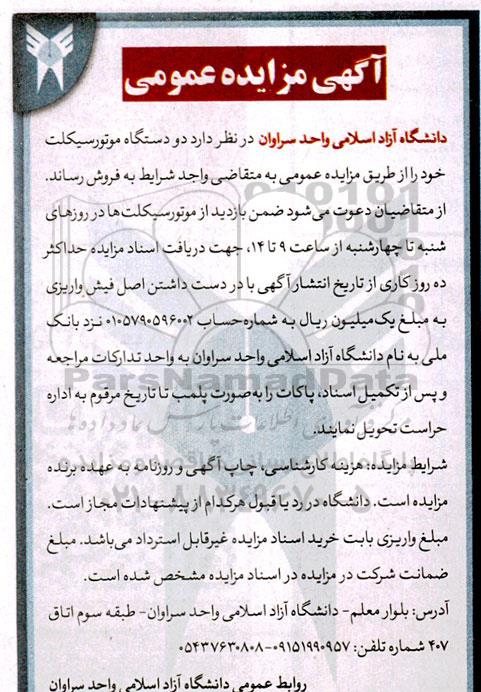 آگهی مزایده عمومی
دانشگاه آزاد اسلامی واحد سراوان در نظر دارد دو دستگاه موتورسیکلت
خود را از طریق مزایده عمومی به متقاضی واجد شرایط به فروش رساند.
از متقاضیان دعوت می‌شود ضمن بازدید از موتورسیکلت‌ها در روزهای
شنبه تا چهارشنبه از ساعت ۹ تا ۱۴، جهت دریافت اسناد مزایده حداکثر
ده روز کاری از تاریخ انتشار آگهی با در دست داشتن اصل فیش واریزی
به مبلغ یک میلیون ریال به شماره حساب ۰۱۰۵۷۹۰۵۹۶۰۰۲ نزد بانک
ملی به نام دانشگاه آزاد اسلامی واحد سراوان به واحد تدارکات مراجعه
و پس از تکمیل اسناد، پاکات را به صورت پلمب تا تاریخ مرقوم به اداره
حراست تحویل نمایند.
شرایط مزایده: هزینه کارشناسی، چاپ آگهی و روزنامه به عهده برنده
مزایده است. دانشگاه در رد یا قبول هرکدام از پیشنهادات مجاز است.
مبلغ واریزی بابت خرید اسناد مزایده غیرقابل استرداد می‌باشد. مبلغ
ضمانت شرکت در مزایده در اسناد مزایده مشخص شده است.
آدرس: بلوار معلم- دانشگاه آزاد اسلامی واحد سراوان- طبقه سوم اتاق
۴۰۷ شماره تلفن: ۰۹۱۵۱۹۹۰۹۵۷-۰۵۴۳۷۶۳۰۸۰۸
روابط عمومی دانشگاه آزاد اسلامی واحد سراوان
ParsNamadData